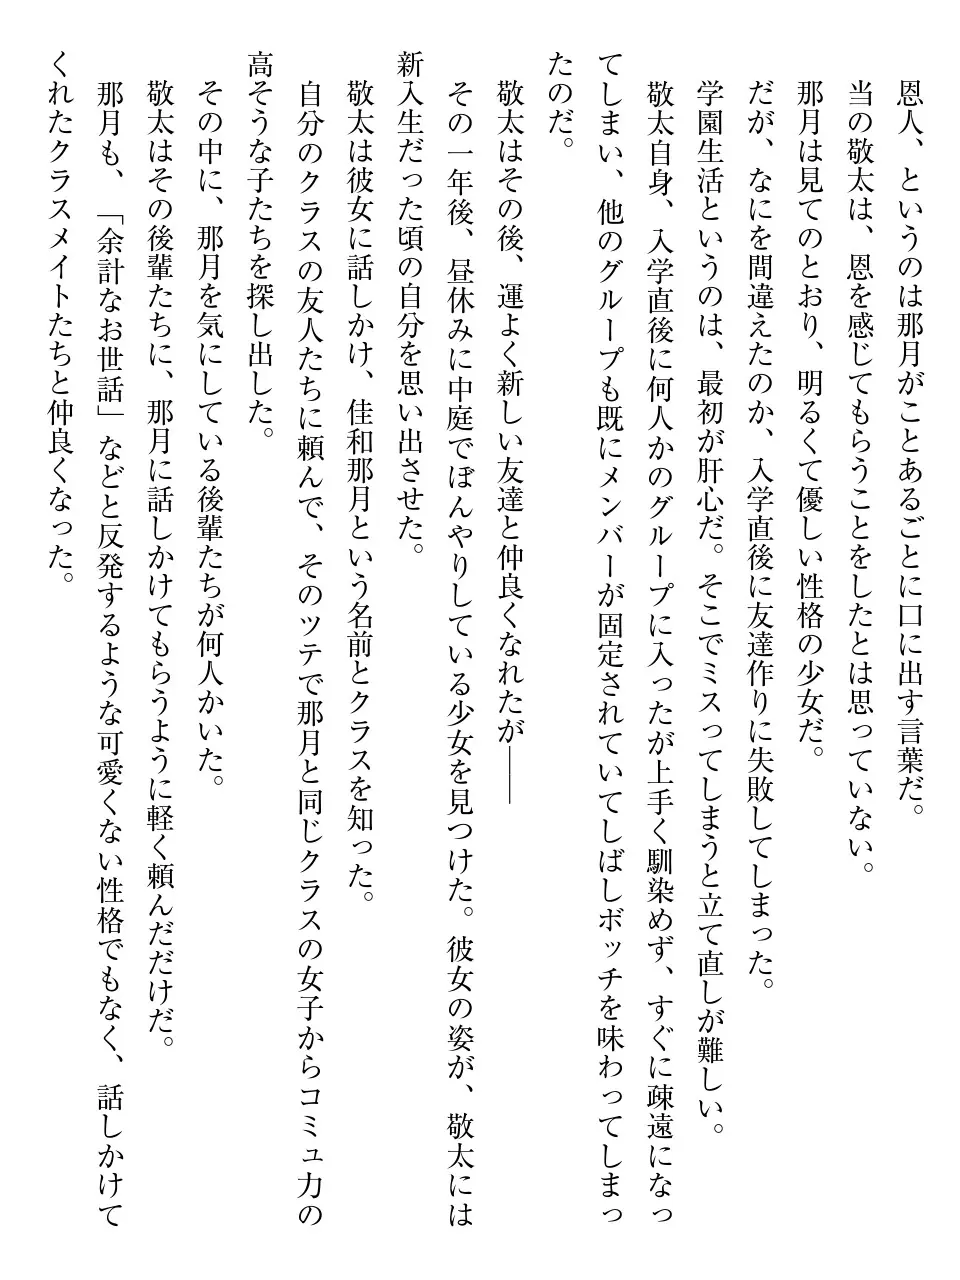 恩人、というのは那月がことあるごとに口に出す言葉だ。
当の敬太は、恩を感じてもらうことをしたとは思っていない。
那月は見てのとおり、明るくて優しい性格の少女だ。
だが、なにを間違えたのか、入学直後に友達作りに失敗してしまった。
学園生活というのは、最初が肝心だ。そこでミスってしまうと立て直しが難しい。
敬太自身、入学直後に何人かのグループに入ったが上手く馴染めず、すぐに疎遠になっ
てしまい、他のグループも既にメンバーが固定されていてしばしボッチを味わってしまっ
たのだ。
敬太はその後、運よく新しい友達と仲良くなれたが――
その一年後、昼休みに中庭でぼんやりしている少女を見つけた。彼女の姿が、敬太には
新入生だった頃の自分を思い出させた。
敬太は彼女に話しかけ、佳和那月という名前とクラスを知った。
自分のクラスの友人たちに頼んで、そのツテで那月と同じクラスの女子からコミュ力の
高そうな子たちを探し出した。
その中に、那月を気にしている後輩たちが何人かいた。
敬太はその後輩たちに、那月に話しかけてもらうように軽く頼んだだけだ。
那月も、「余計なお世話」などと反発するような可愛くない性格でもなく、話しかけて
くれたクラスメイトたちと仲良くなった。